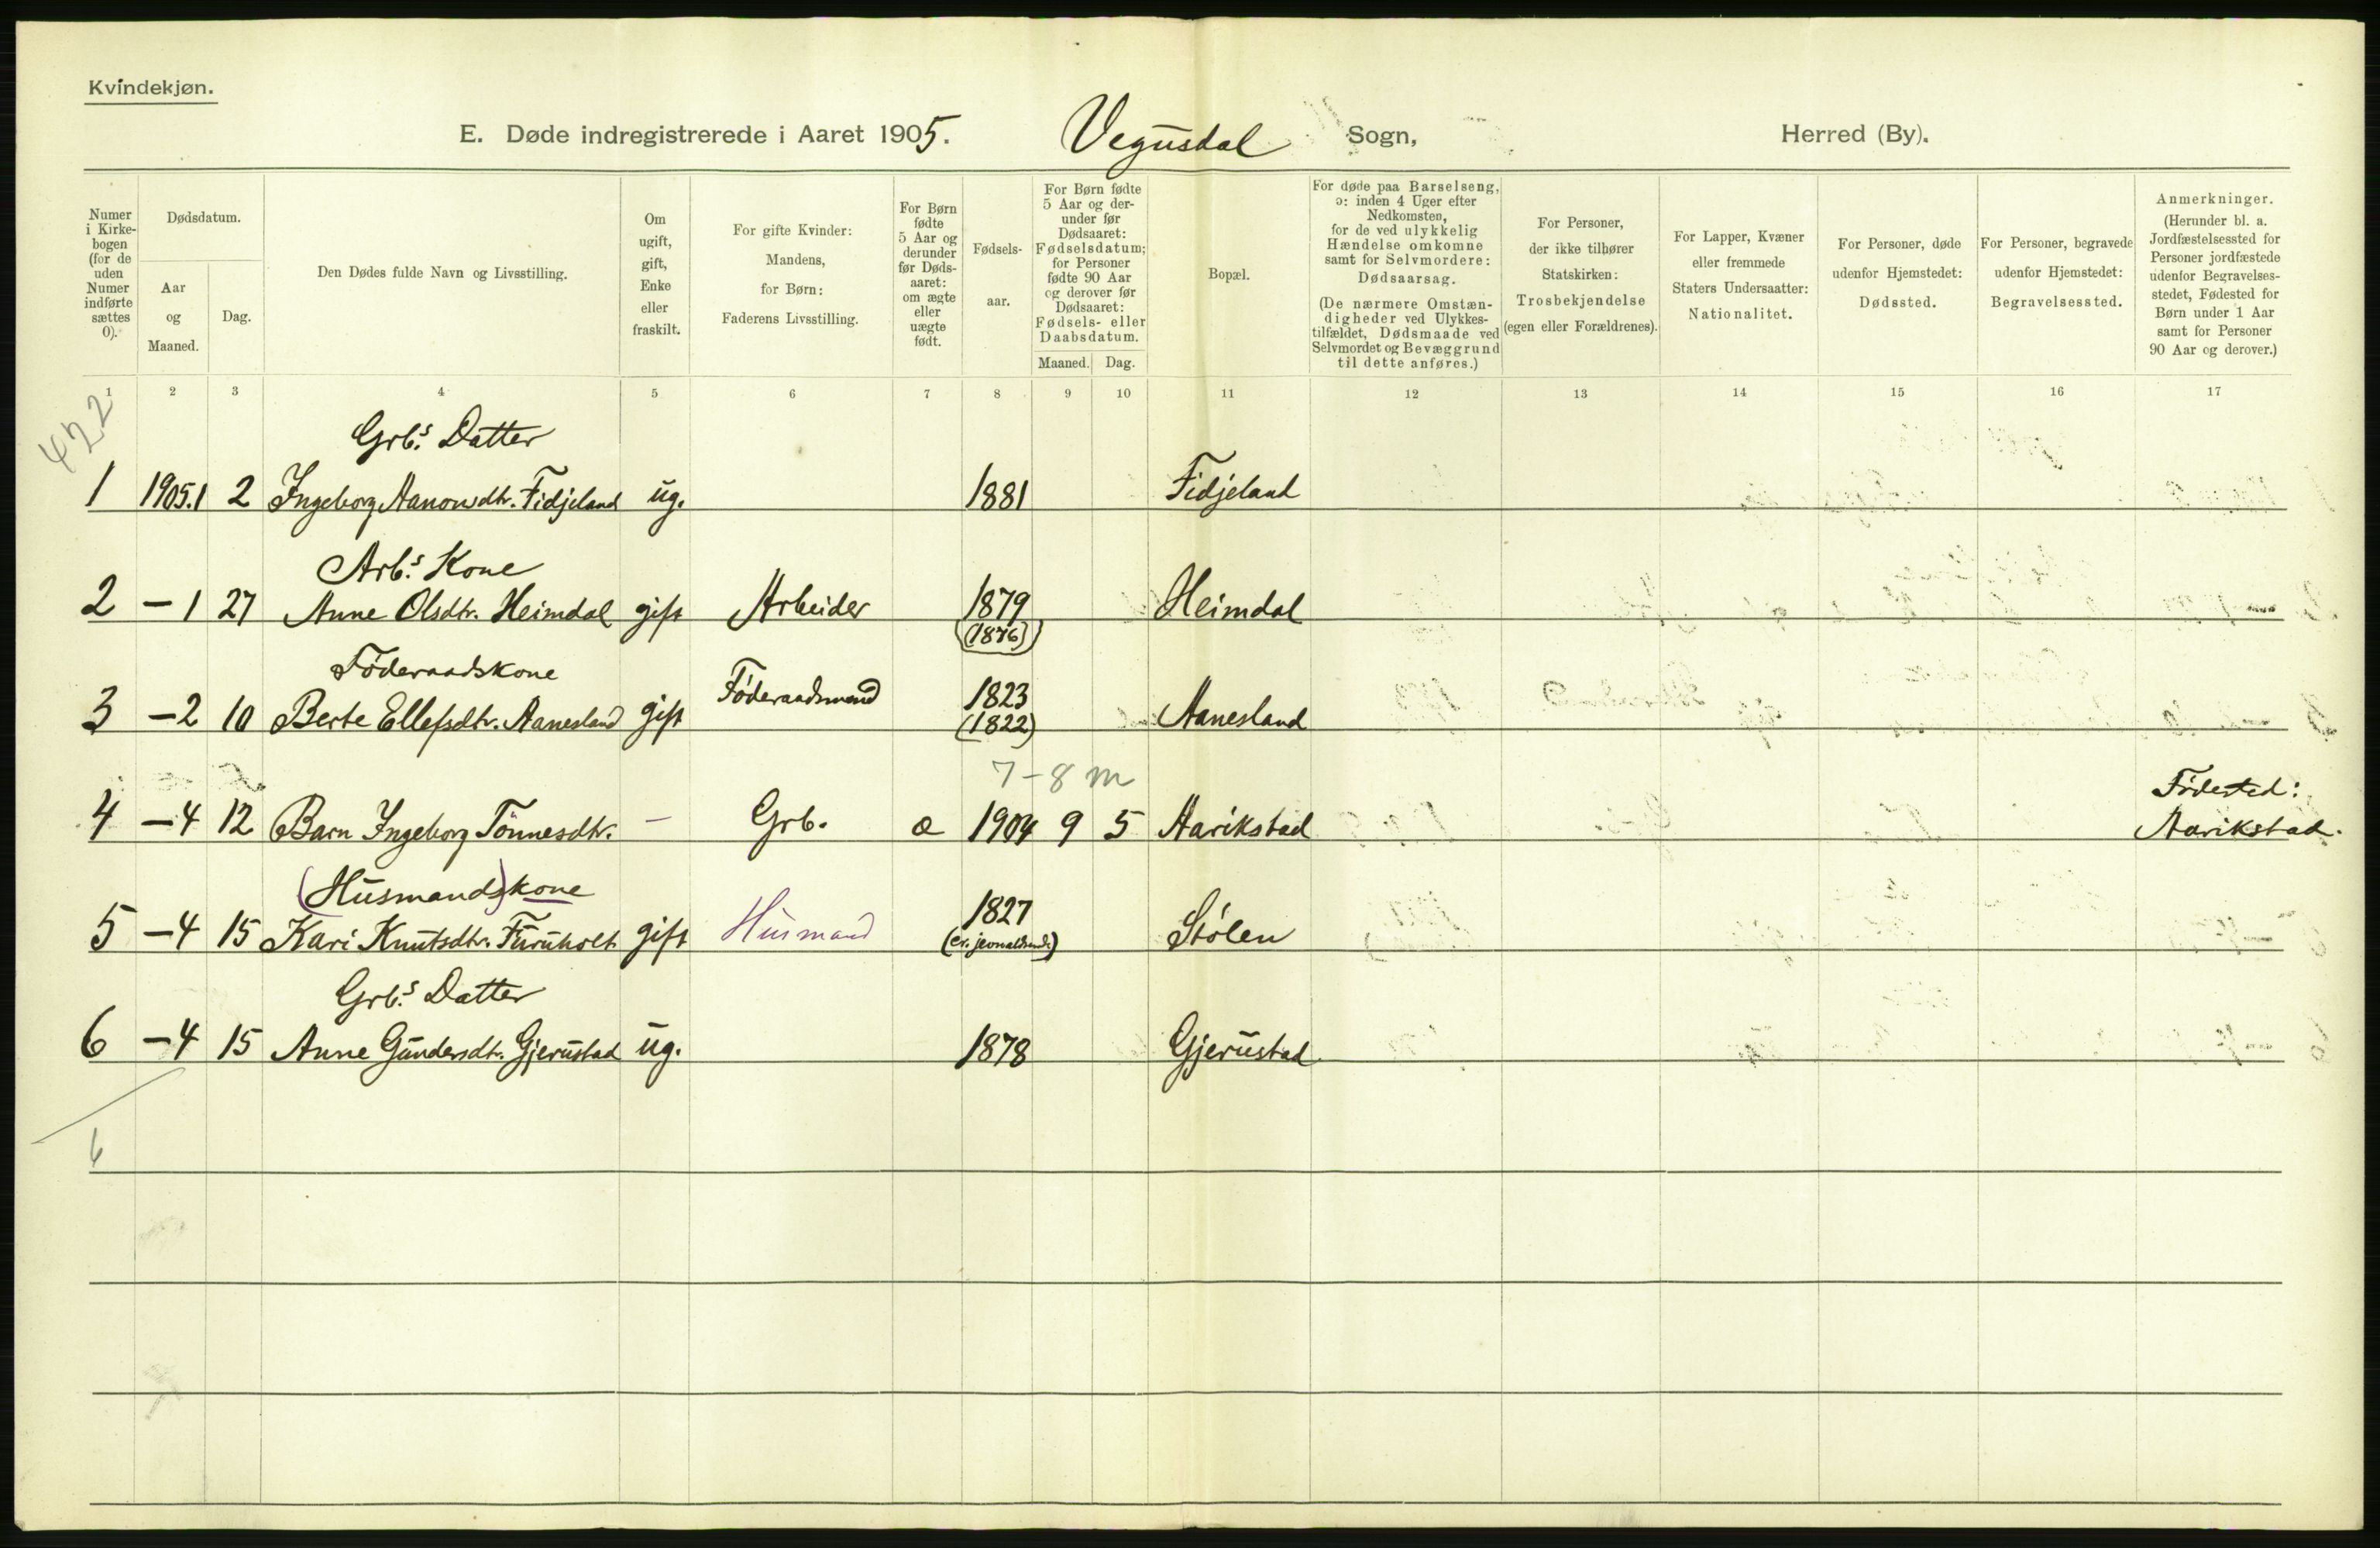 Kvindekjøn.
E. Døde indregistrerede i Aaret 1905. Vegusdal Sogn, Herred (By).
Numer i Kirkebogen (for de uden Numer indførte sættes 0).
Dødsdatum.
Aar og Maaned.
Dag.
Den Dødes fulde Navn og Livsstilling.
Om ugift, gift, Enke eller fraskilt.
For gifte Kvinder: Mandens, for Børn: Faderens Livsstilling.
For Børn fødte 5 Aar og derunder før Døds-aaret: om ægte eller uægte født.
Fødsels-aar.
For Børn fødte 5 Aar og der-under før Dødsaaret: Fødselsdatum; for Personer fødte 90 Aar og derover før Dødsaaret: Fødsels- eller Daabsdatum.
Maaned. Dag.
Bopæl.
For døde paa Barselseng, ɔ: inden 4 Uger efter Nedkomsten, for de ved ulykkelig Hændelse omkomne samt for Selvmordere: Dødsaarsag.
(De nærmere Omstæn-digheder ved Ulykkes-tilfældet, Dødsmaade ved Selvmordet og Bevæggrund til dette anføres.)
For Personer, der ikke tilhører Statskirken: Trosbekjendelse (egen eller Forældrenes).
For Lapper, Kvæner eller fremmede Staters Undersaatter: Nationalitet.
For Personer, døde udenfor Hjemstedet: Dødssted.
For Personer, begravede udenfor Hjemstedet: Begravelsessted.
Anmerkninger.
(Herunder bl. a. Jordfæstelsessted for Personer jordfæstede udenfor Begravelses-stedet, Fødested for Børn under 1 Aar samt for Personer 90 Aar og derover.)
1 2 3 4 5 6 7 8 9 10 11 12 13 14 15 16 17
422
Grb.s Datter
1 1905.1 2 Ingeborg Aanonsdtr. Fidjeland ug. 1881 Fidjeland
Arb.s Kone
2 – 1 27 Anne Olsdtr. Heimdal gift Arbeider 1879 Heimdal
(1876)
Föderaadskone
3 – 2 10 Berte Ellefsdtr. Aanesland gift Föderaadsmand 1823 Aanesland
(1822)
7–8 m
Födested:
4 – 4 12 Barn Ingeborg Tönnesdtr. – Grb. æ 1904 9 5 Aarikstad Aarikstad.
(Husmands)kone
5 – 4 15 Kari Knutsdtr. Furuholt gift Husmand 1827 Stölen
Grb.s Datter
6 – 4 15 Anne Gundersdtr. Gjerustad ug. 1878 Gjerustad
6